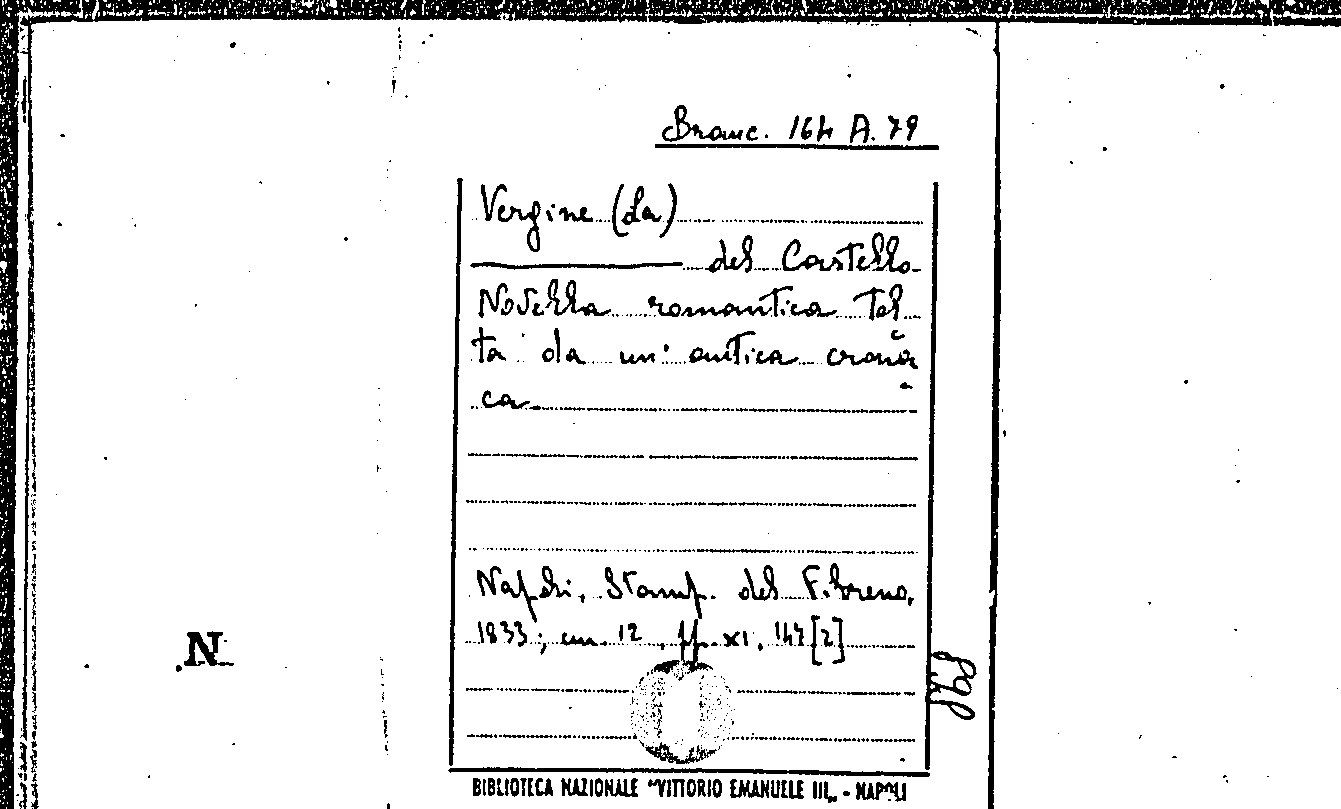 Branc. 164 A. 79
Vergine (La)
del Castello
Novella romantica tol
ta da un' antica crona
ca.
Napoli, Stamp. del Fibreno,
1833; cm. 12, pp. XI, 147 [2]
N
BIBLIOTECA NAZIONALE "VITTORIO EMANUELE III„ - NAPOLI